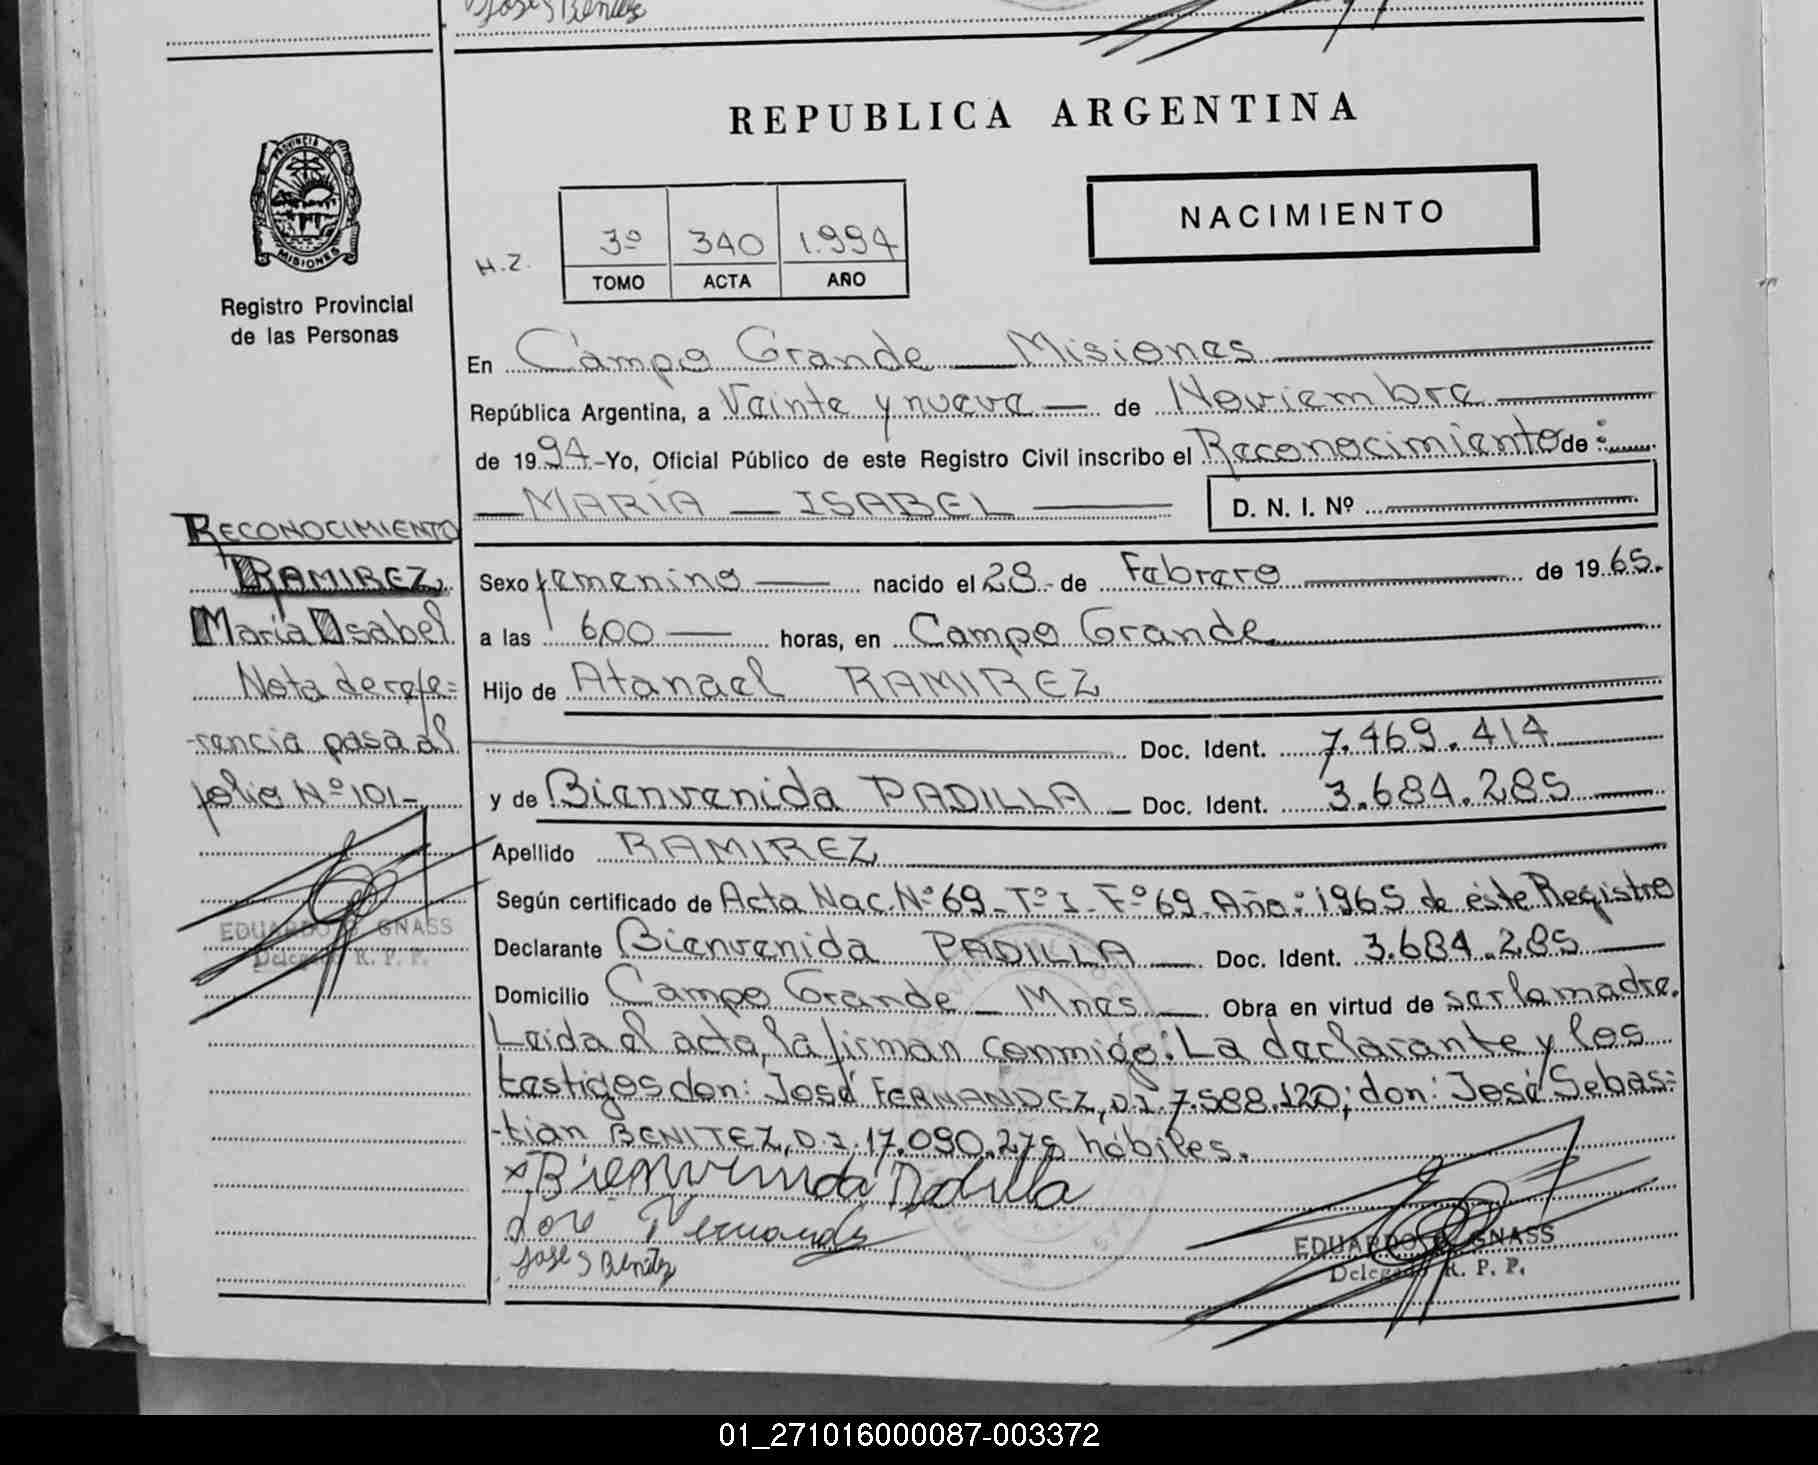 José S Benitez
REPUBLICA ARGENTINA
NACIMIENTO
PROVINCIA DE
MISIONES
Registro Provincial
de las Personas
H.Z.
3º 340 1.994
TOMO ACTA AÑO
En Campo Grande Misiones
República Argentina, a Veinte y nueve de Noviembre
de 1994.-Yo, Oficial Público de este Registro Civil inscribo el Reconocimiento de :
MARÍA ISABEL
D. N. I. Nº
Sexo femenino nacido el 28 de Febrero de 1965.
a las 6,00 horas, en Campo Grande.
Hijo de Atanael RAMIREZ
Doc. Ident. 7.469.414
y de Bienvenida PADILLA Doc. Ident. 3.684.285
Apellido RAMIREZ
Según certificado de Acta Nac. Nº 69 - Tº I - Fº 69 - Año: 1965 de éste Registro
Declarante Bienvenida PADILLA Doc. Ident. 3.684.285
Domicilio Campo Grande Mnes Obra en virtud de ser la madre.
Leida el acta, la firman conmigo: La declarante y los
testigos don: José FERNANDEZ, D.I. 7.588.120; don: José Sebas=
-tián BENITEZ, D.I. 17.090.275 hábiles.
x Bienvenida Padilla
José Fernandez
José S Benitez
EDUARDO GNASS
Delegado R. P. P.
RECONOCIMIENTO
RAMIREZ,
María Isabel
Nota de refe=
-rencia pasa al
folio Nº 101-
EDUARDO GNASS
Delegado R. P. P.
01_271016000087-003372